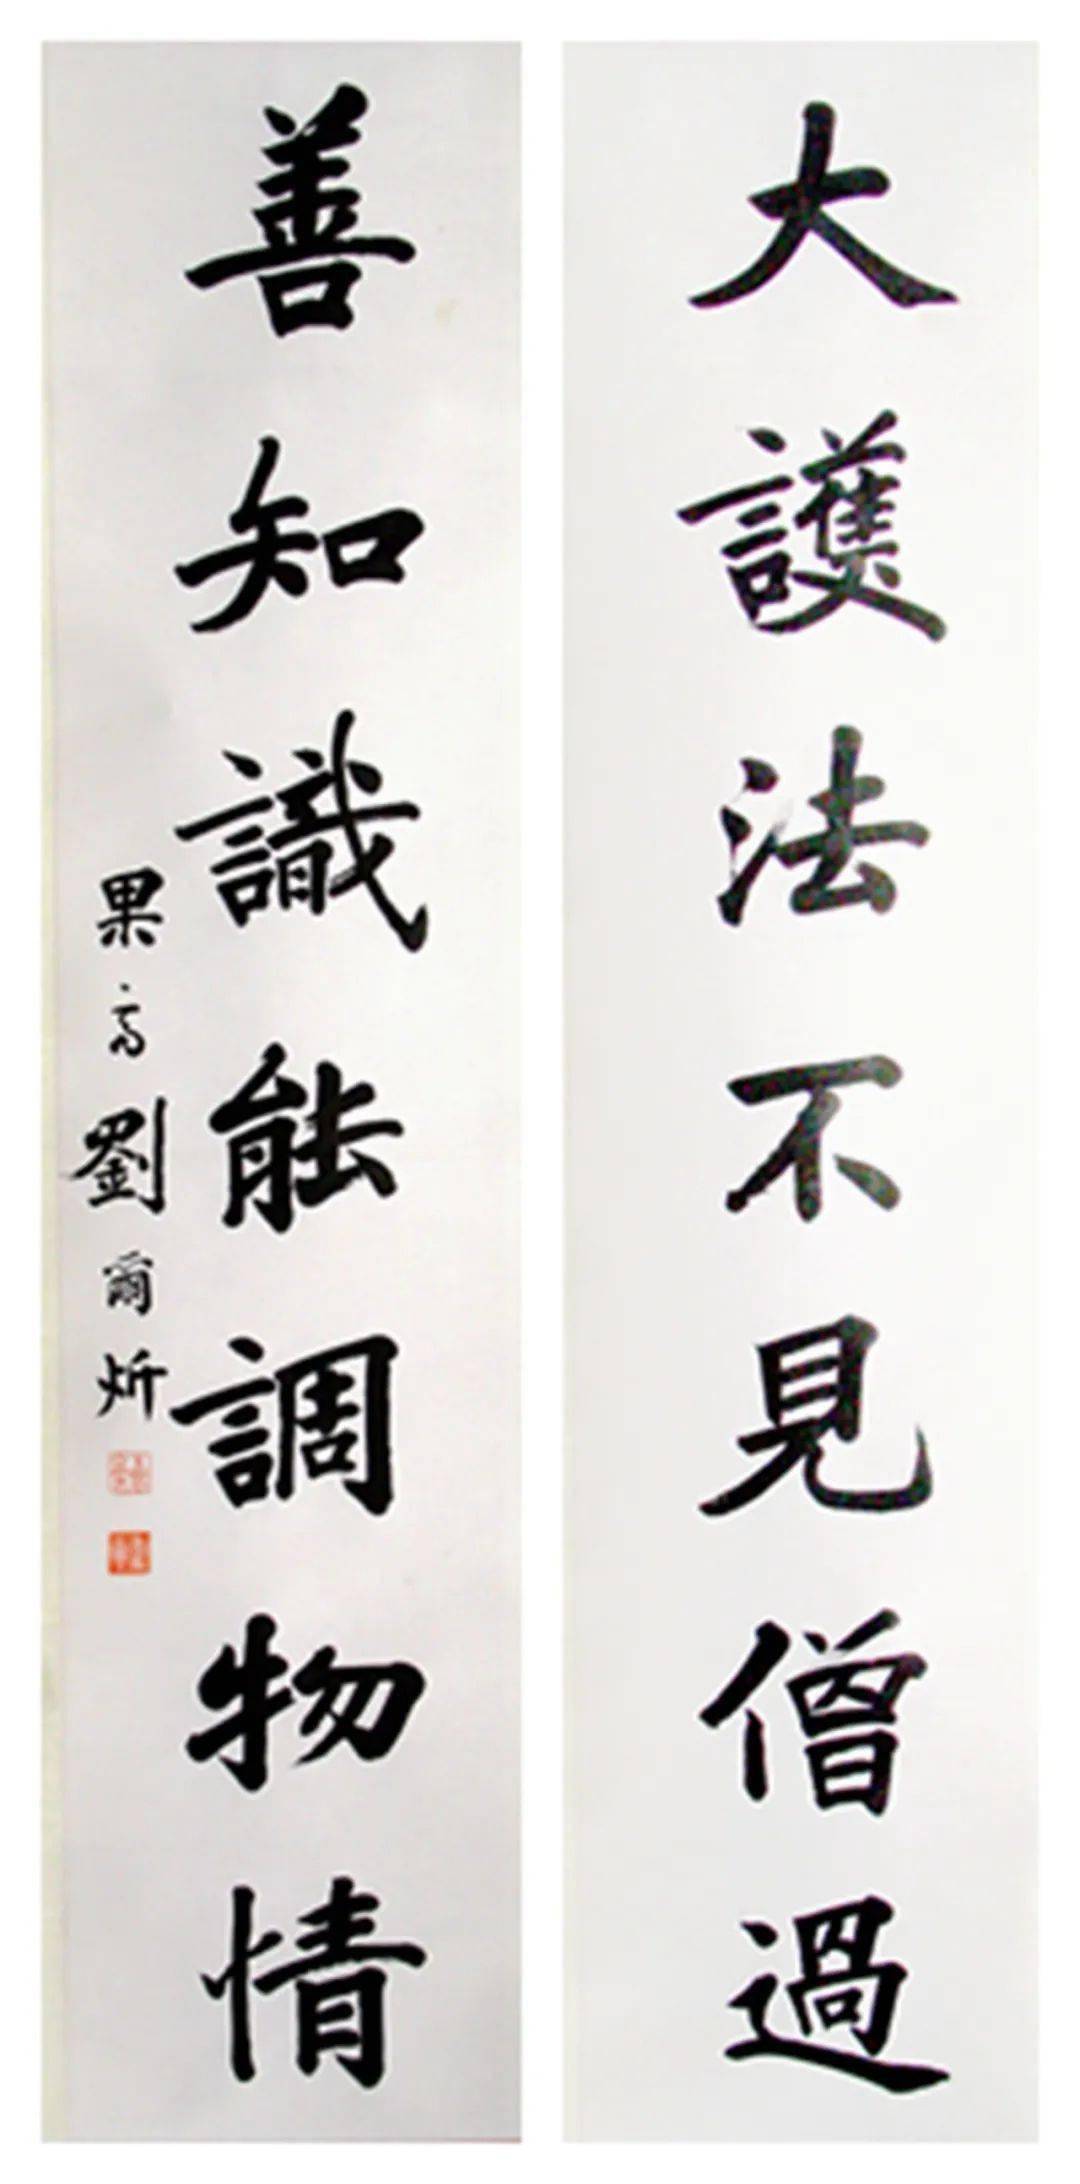 大護法不見僧過
善知識能調物情
果齋劉爾炘